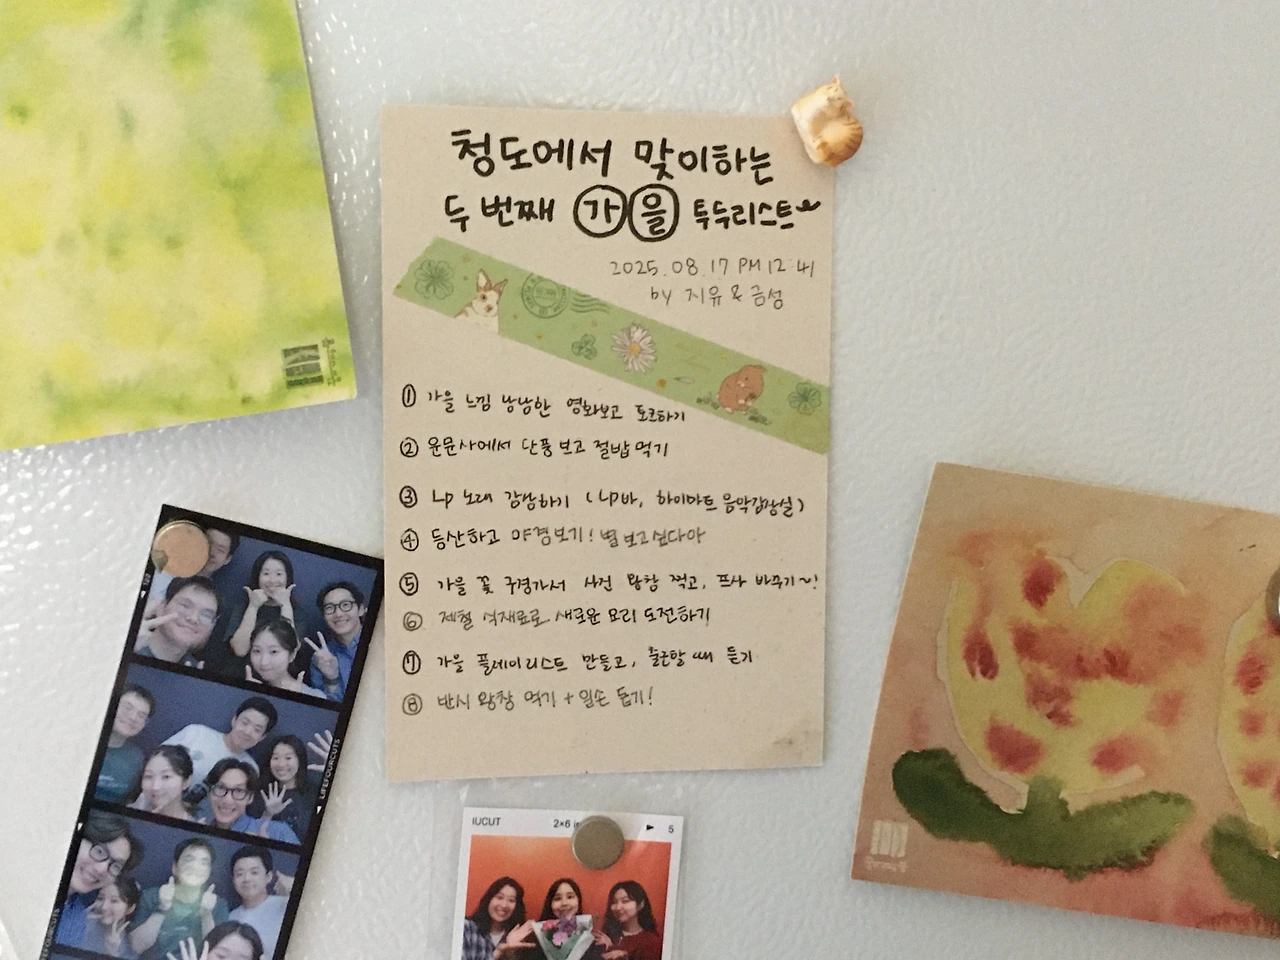 청도에서 맞이하는
두 번째 가을 투두리스트~
2025.08.17 PM 12:41
by 지유 & 금성
① 가을 느낌 낭낭한 영화보고 토크하기
② 운문사에서 단풍보고 절밥먹기
③ LP 노래 감상하기 (LP바, 하이마트 음악감상실)
④ 등산하고 야경보기! 별 보고싶다아
⑤ 가을 꽃 구경가서 사진 왕창 찍고, 프사 바꾸기~!
⑥ 제철 식재료로 새로운 요리 도전하기
⑦ 가을 플레이리스트 만들고, 출근할 때 듣기
⑧ 반시 왕창 먹기 + 일손 돕기!
LIFEFOURCUTS
IUCUT
2×6
5